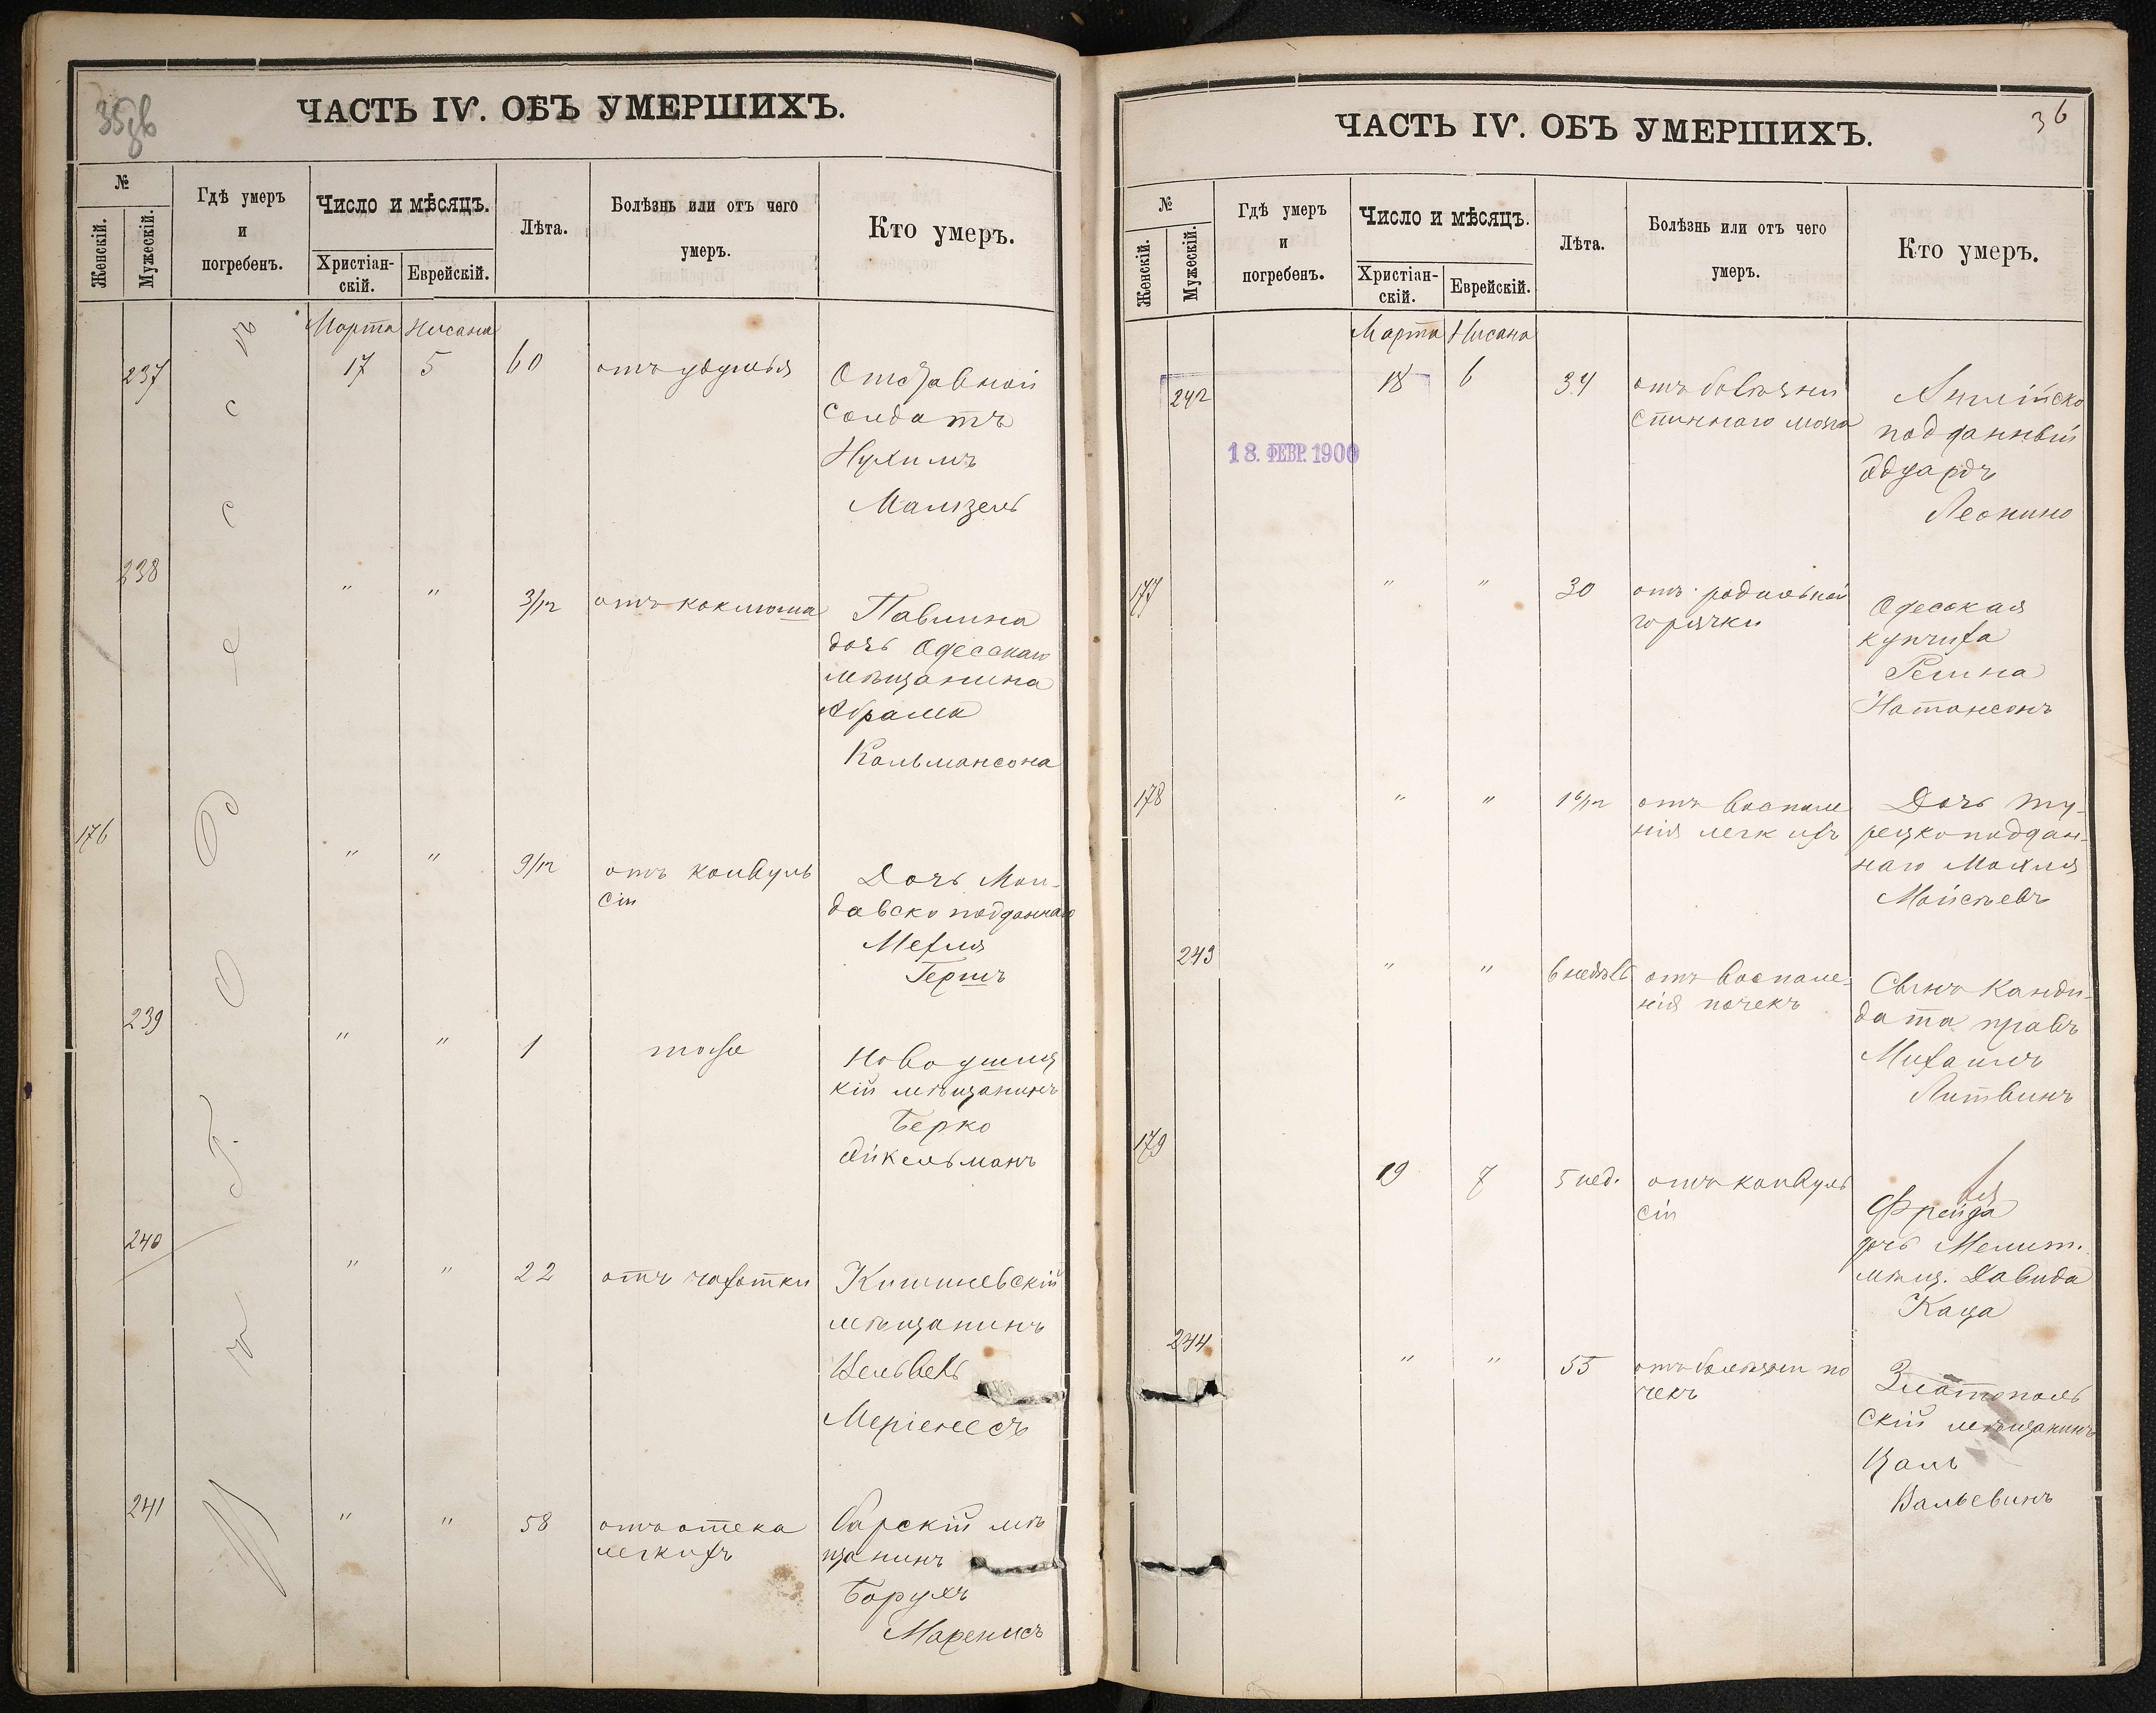 35об
ЧАСТЬ IV. ОБЪ УМЕРШИХЪ.
№
Женскій.
Мужескій.
Гдѣ умеръ
и
погребенъ.
Число и мѣсяцъ.
Христіан-
скій.
Еврейскій.
Лѣта.
Болѣзнь или отъ чего
умеръ.
Кто умеръ.
Марта Нисана
237 17 5 60 отъ удушья
Отставной
солдатъ
Нухимъ
Мальзель
238 " " 3/12 отъ коклюша
Павлина
дочь Одесскаго
мѣщанина
Абрама
Кальмансона
176 " " 9/12 отъ конвуль
сіи
Дочь Мол-
давско подданнаго
Мехля
Гершъ
239 " " 1 тоже
Новоушиц
кій мѣщанинъ
Берко
Айкельманъ
240 " " 22 отъ чахотки
Кишиневскій
мѣщанинъ
Меріенесъ
241 " " 58 отъ отека
легкихъ
Барскій мѣ
щанинъ
Борухъ
Маренисъ
Въ Одессѣ
36
ЧАСТЬ IV. ОБЪ УМЕРШИХЪ.
№
Женскій.
Мужескій.
Гдѣ умеръ
и
погребенъ.
Число и мѣсяцъ.
Христіан-
скій.
Еврейскій.
Лѣта.
Болѣзнь или отъ чего
умеръ.
Кто умеръ.
Марта Нисана
242 18 6 34 отъ болѣзни
спиннаго мозга
Англійско
подданный
Эдуардъ
Леонино
18. ФЕВР. 1900
177 " " 30 отъ родильной
горячки
Одесская
купчиха
Регина
Натансонъ
178 " " 1 6/12 отъ воспале
нія легкихъ
Дочь ту-
рецкоподдан-
наго Мохля
Мойсѣевъ
243 " " 6 недѣль отъ воспале-
нія почекъ
Сынъ канди-
дата правъ
Михаилъ
Литвинъ
179 19 7 5 нед. отъ конвуль
сіи
Фрейда
дочь Мелит.
мѣщ. Давида
Каца
244 " " 55 отъ болѣзни по
чекъ
Златополь
скій мѣщанинъ
Цаль
Вальевинъ